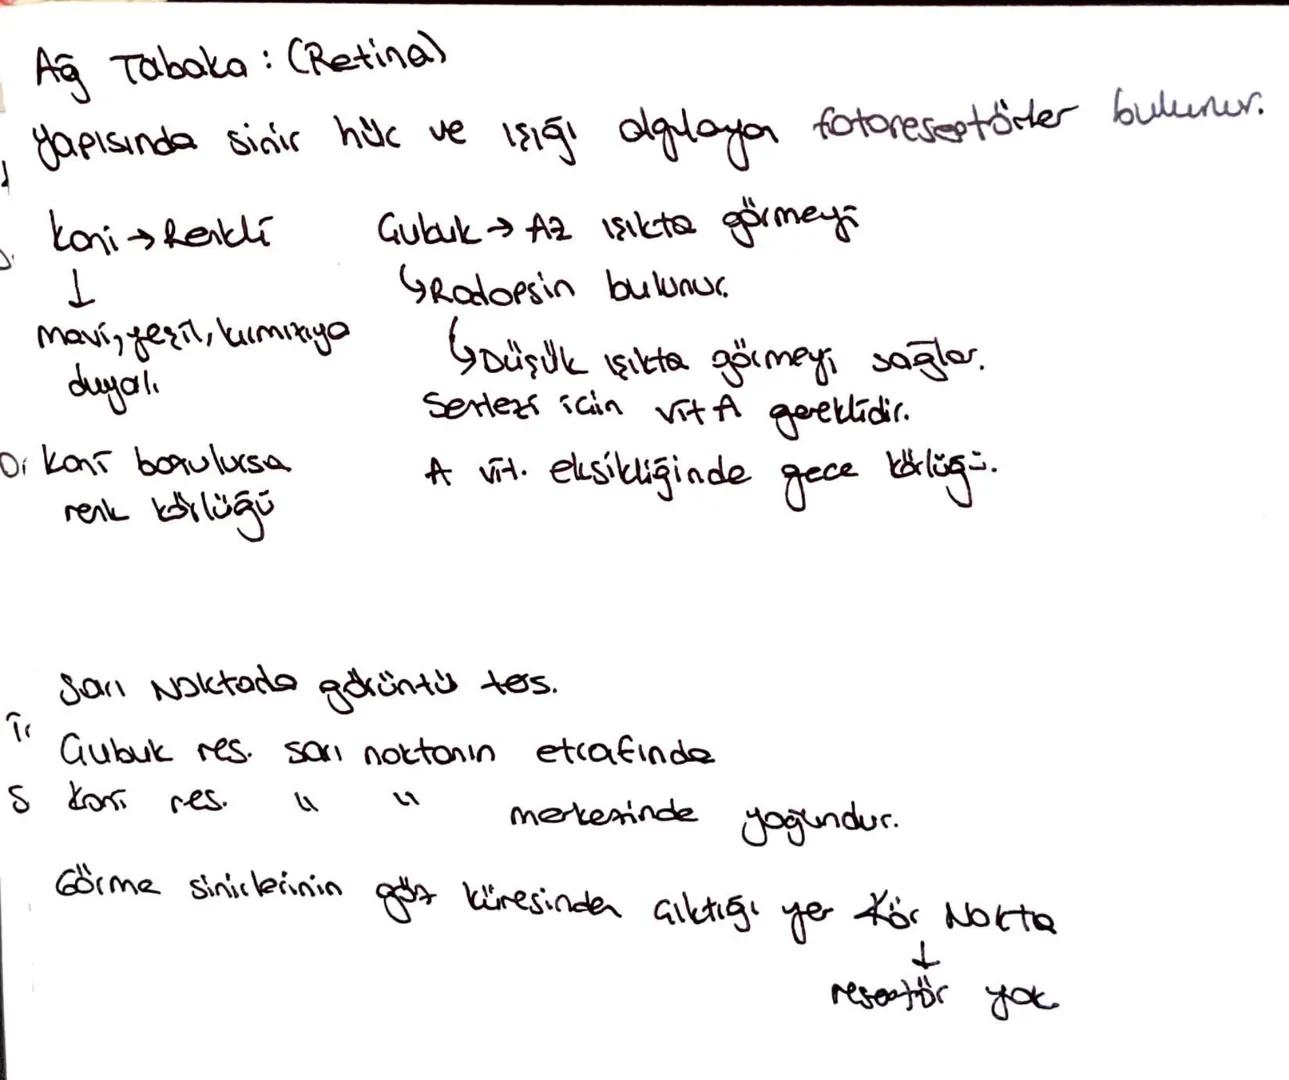 Ağ Tabaka: (Retina)
yapısında sinir hüc ve ışığı algılayan fotoreseptörler bulunur.
koni → Renkli
↓
mavi, yeşil, kırmızıya
duyalı
koni bozulursa
renk körlüğü
Çubuk → Az ışıkta görmeyi
↳ Rodopsin bulunur.
↳ Düşük ışıkta görmeyi sağlar.
Sentezi için vit A gereklidir.
A vit. eksikliğinde gece körlüğü.
Sarı Noktada görüntü ters.
Çubuk res. sarı noktanın etrafında
Koni res. " " merkezinde yoğundur.
Görme sinirlerinin göz küresinden çıktığı yer Kör Nokta
↓
reseptör yok